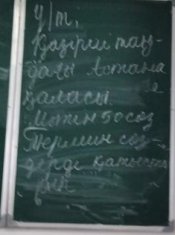 Ү/т.
Қазіргі таң-
дағы Астана
қаласы
Мәтін 50 сөз
Термин сөз-